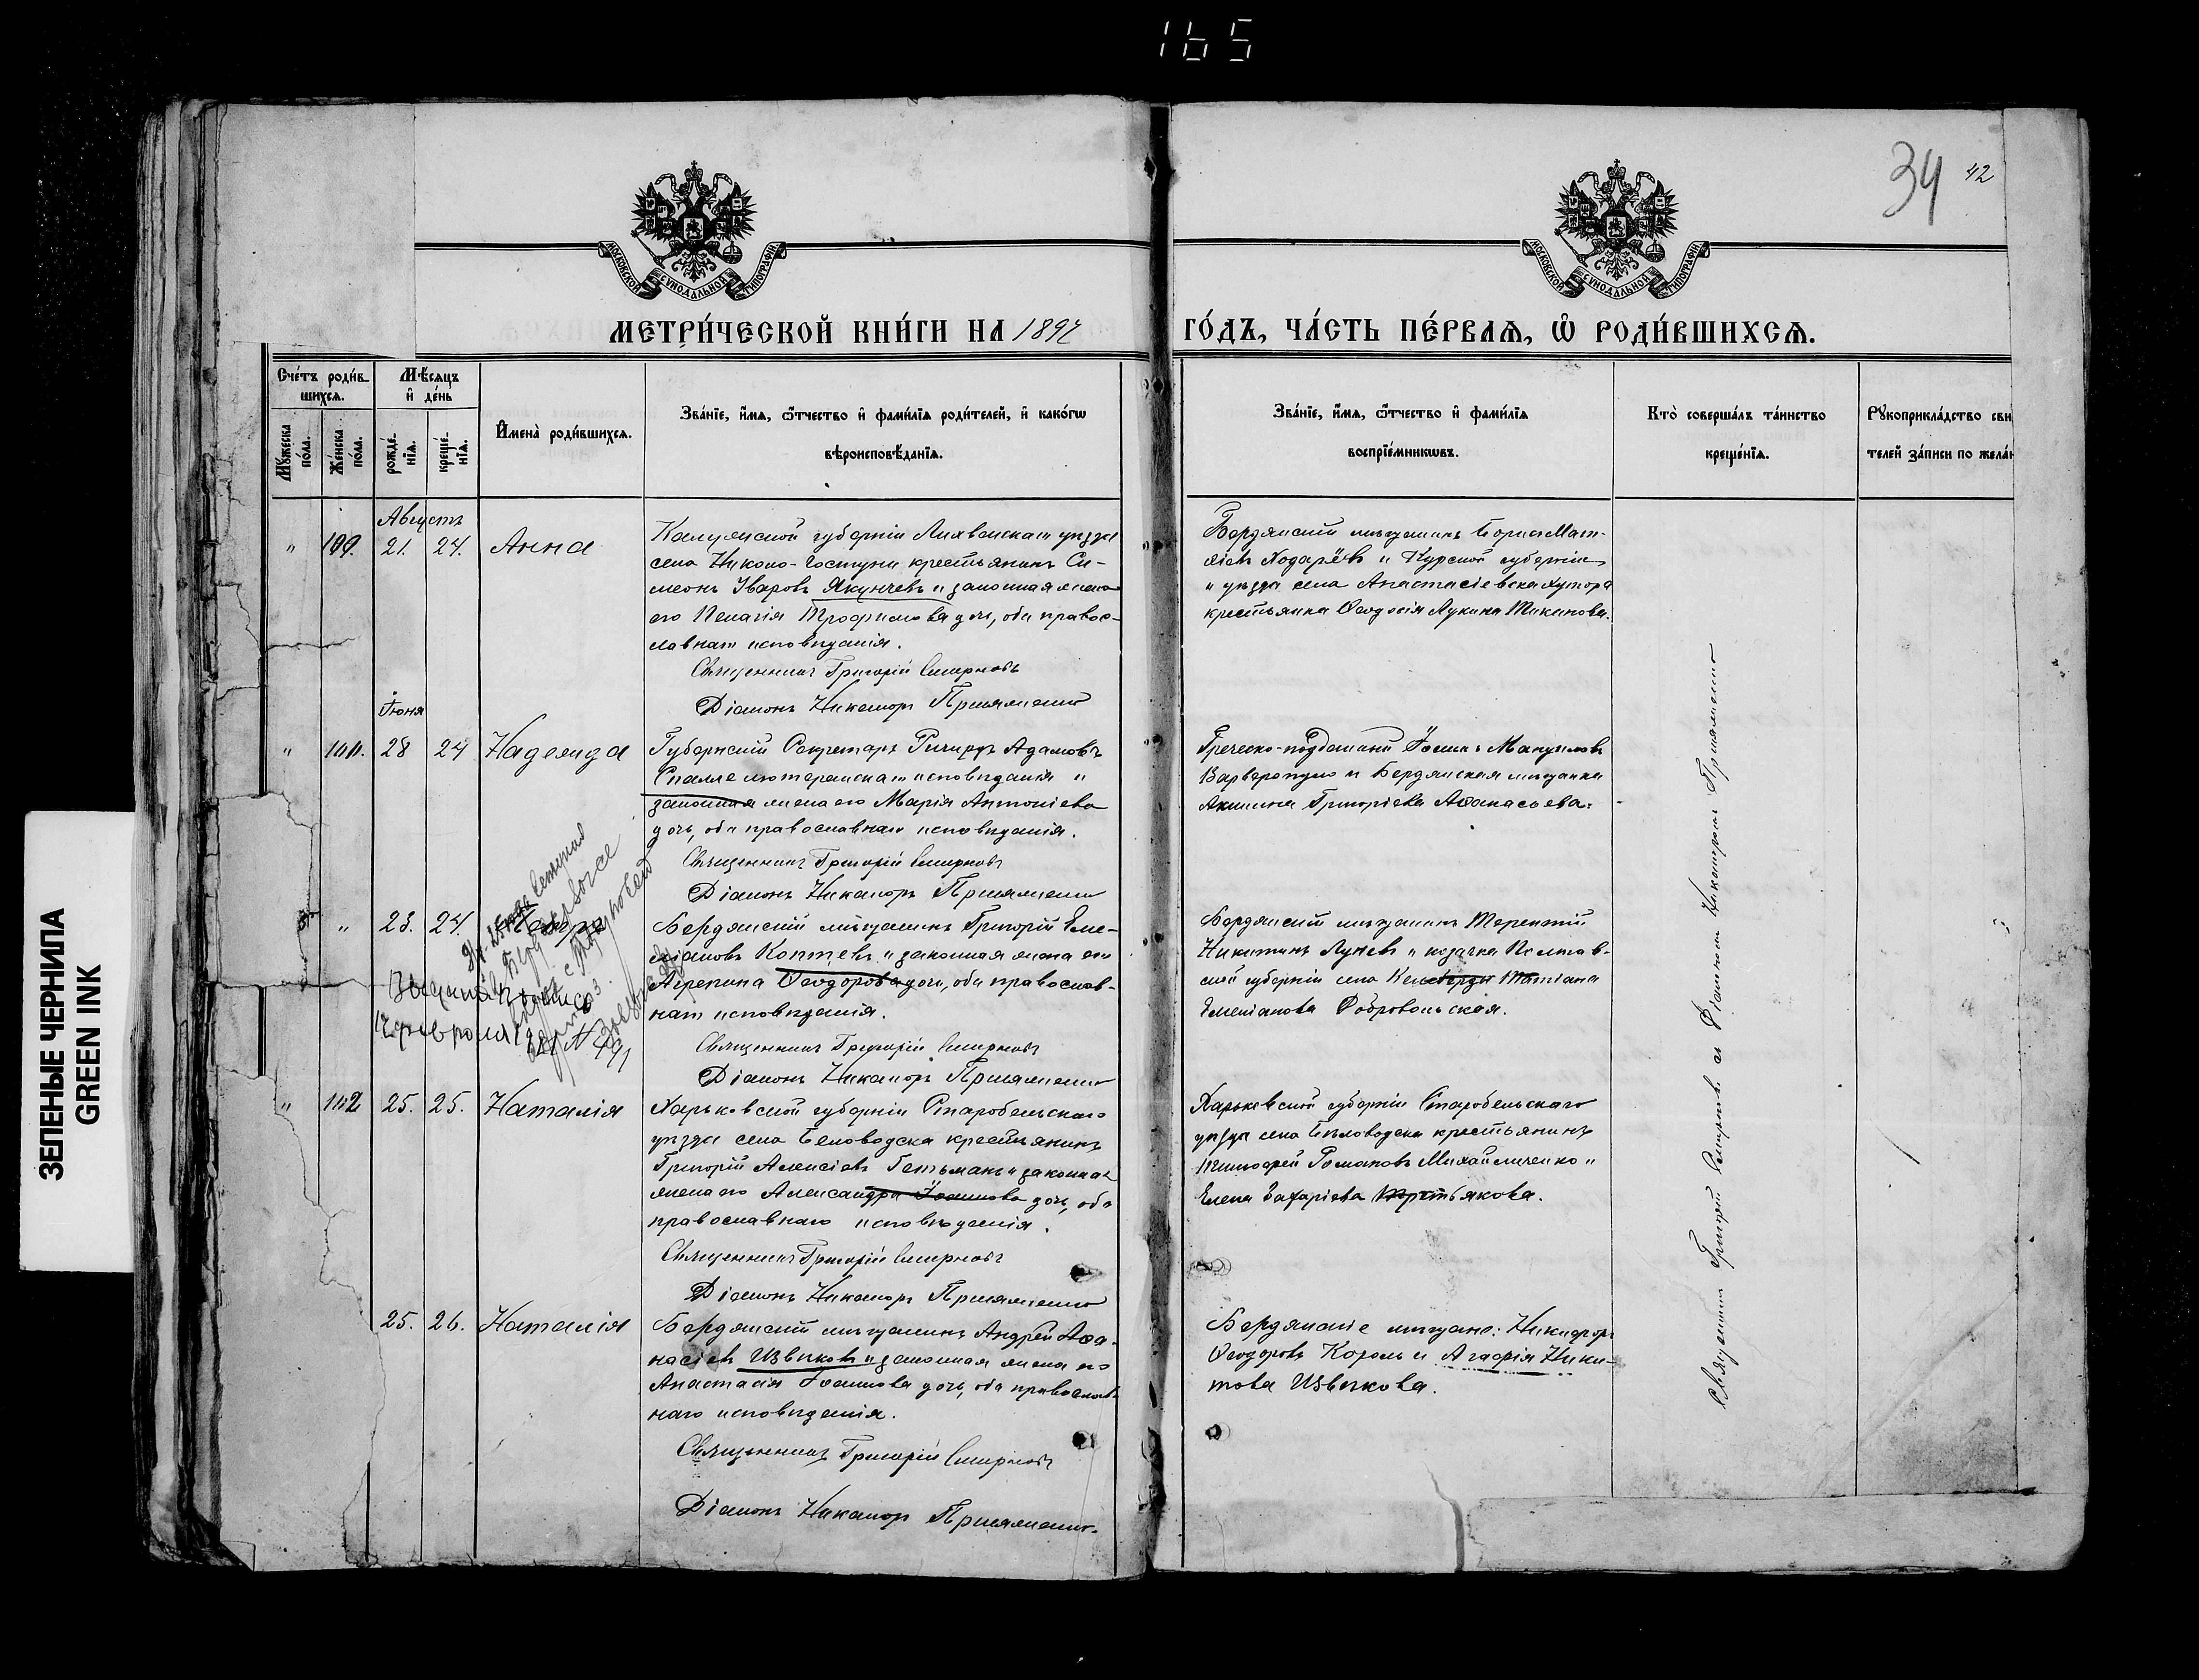 165
34 42
МОСКОВСКОЙ СѴНОДАЛЬНОЙ ТИПОГРАФІИ
МОСКОВСКОЙ СѴНОДАЛЬНОЙ ТИПОГРАФІИ
МЕТРИ́ЧЕСКОЙ КНИ́ГИ НА 1897
ГО́ДЪ, ЧА́СТЬ ПЕ́РВАѦ, Ѡ҆ РОДИ́ВШИХСѦ.
Сче́тъ роди́в-
шихсѧ.
Мꙋ́жеска
по́ла.
Же́нска
по́ла.
Мѣ́сѧцъ
и҆ де́нь
рожде́-
нїѧ.
креще́-
нїѧ.
И҆мена̀ роди́вшихсѧ.
Зва́нїе, и҆́мѧ, ѻ҆́тчество и҆ фами́лїѧ роди́телей, и҆ како́гѡ
вѣроисповѣ́данїѧ.
Зва́нїе, и҆́мѧ, ѻ҆́тчество и҆ фами́лїѧ
воспрїе́мникѡвъ.
Кто̀ соверша́лъ та́инство
креще́нїѧ.
Рꙋкоприкла́дство сви
телей за́писи по жела́н
Августъ
" 109. 21. 24. Анна
Калужской губерніи Лихвинскаго уѣзда
села Николо-Гостуни крестьянинъ Си-
меонъ Уваровъ Якунчевъ и законная жена
его Пелагія Трофимова дочь, оба правос-
лавнаго исповѣданія.
Священникъ Григорій Смирновъ
Діаконъ Никаноръ
Бердянскій мѣщанинъ
Ходарёвъ и Курской губерніи
" уѣзда села Анастасіевска Хутора
крестьянка Ѳеодосія Лукина
Іюня
" 28 24 Надежда
Губернскій Секретарь Рихардъ Адамовъ
лютеранскаго исповѣданія и
законная жена его Марія Антоніева
дочь, оба православнаго исповѣданія.
Священникъ Григорій Смирновъ
Діаконъ Никаноръ
Греческо-подданный Іоаннъ Мануиловъ
Варваропуло и Бердянская мѣщанка
Акилина Григоріева Аѳанасьева.
" 23. 24. Петръ
Бердянскій мѣщанинъ Григорій Еме-
ліановъ Коптевъ и законная жена его
Агрепина Ѳеодорова дочь, оба православ-
наго исповѣданія.
Священникъ Григорій Смирновъ
Діаконъ Никаноръ
Бердянскій мѣщанинъ Терентій
Никитинъ Луневъ и казачка Полтав-
ской губерніи села Келеберды Татіана
Емеліанова Добровольская.
" 112 25. 25. Наталія
Харьковской губерніи Старобельскаго
уѣзда села Беловодска крестьянинъ
Григорій Алексіевъ Гетьманъ и законная
жена его Александра Іоаннова дочь, оба
православнаго исповѣданія.
Священникъ Григорій Смирновъ
Діаконъ Никаноръ
Харьковской губерніи Старобельскаго
уѣзда села Бѣловодска крестьянинъ
Тимофей Романовъ Михайличенко и
Елена Захаріева Третьякова.
25. 26. Наталія
Бердянскій мѣщанинъ Андрей Аѳа-
насіевъ Извѣковъ и законная жена его
Анастасія Іоаннова дочь, оба православ-
наго исповѣданія.
Священникъ Григорій Смирновъ
Діаконъ Никаноръ
Бердянскіе мѣщане: Никифоръ
Ѳеодоровъ Король и Агафія Ники-
това Извѣкова.
Священникъ Григорій Смирновъ съ Діакономъ Никаноромъ
ЗЕЛЕНЫЕ ЧЕРНИЛА
GREEN INK